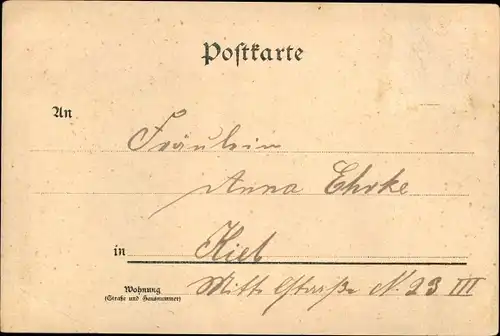 Postkarte
An
Fräulein
Anna Ehrke
in Kiel
Wohnung
(Straße und Hausnummer)
Straße N. 23 III